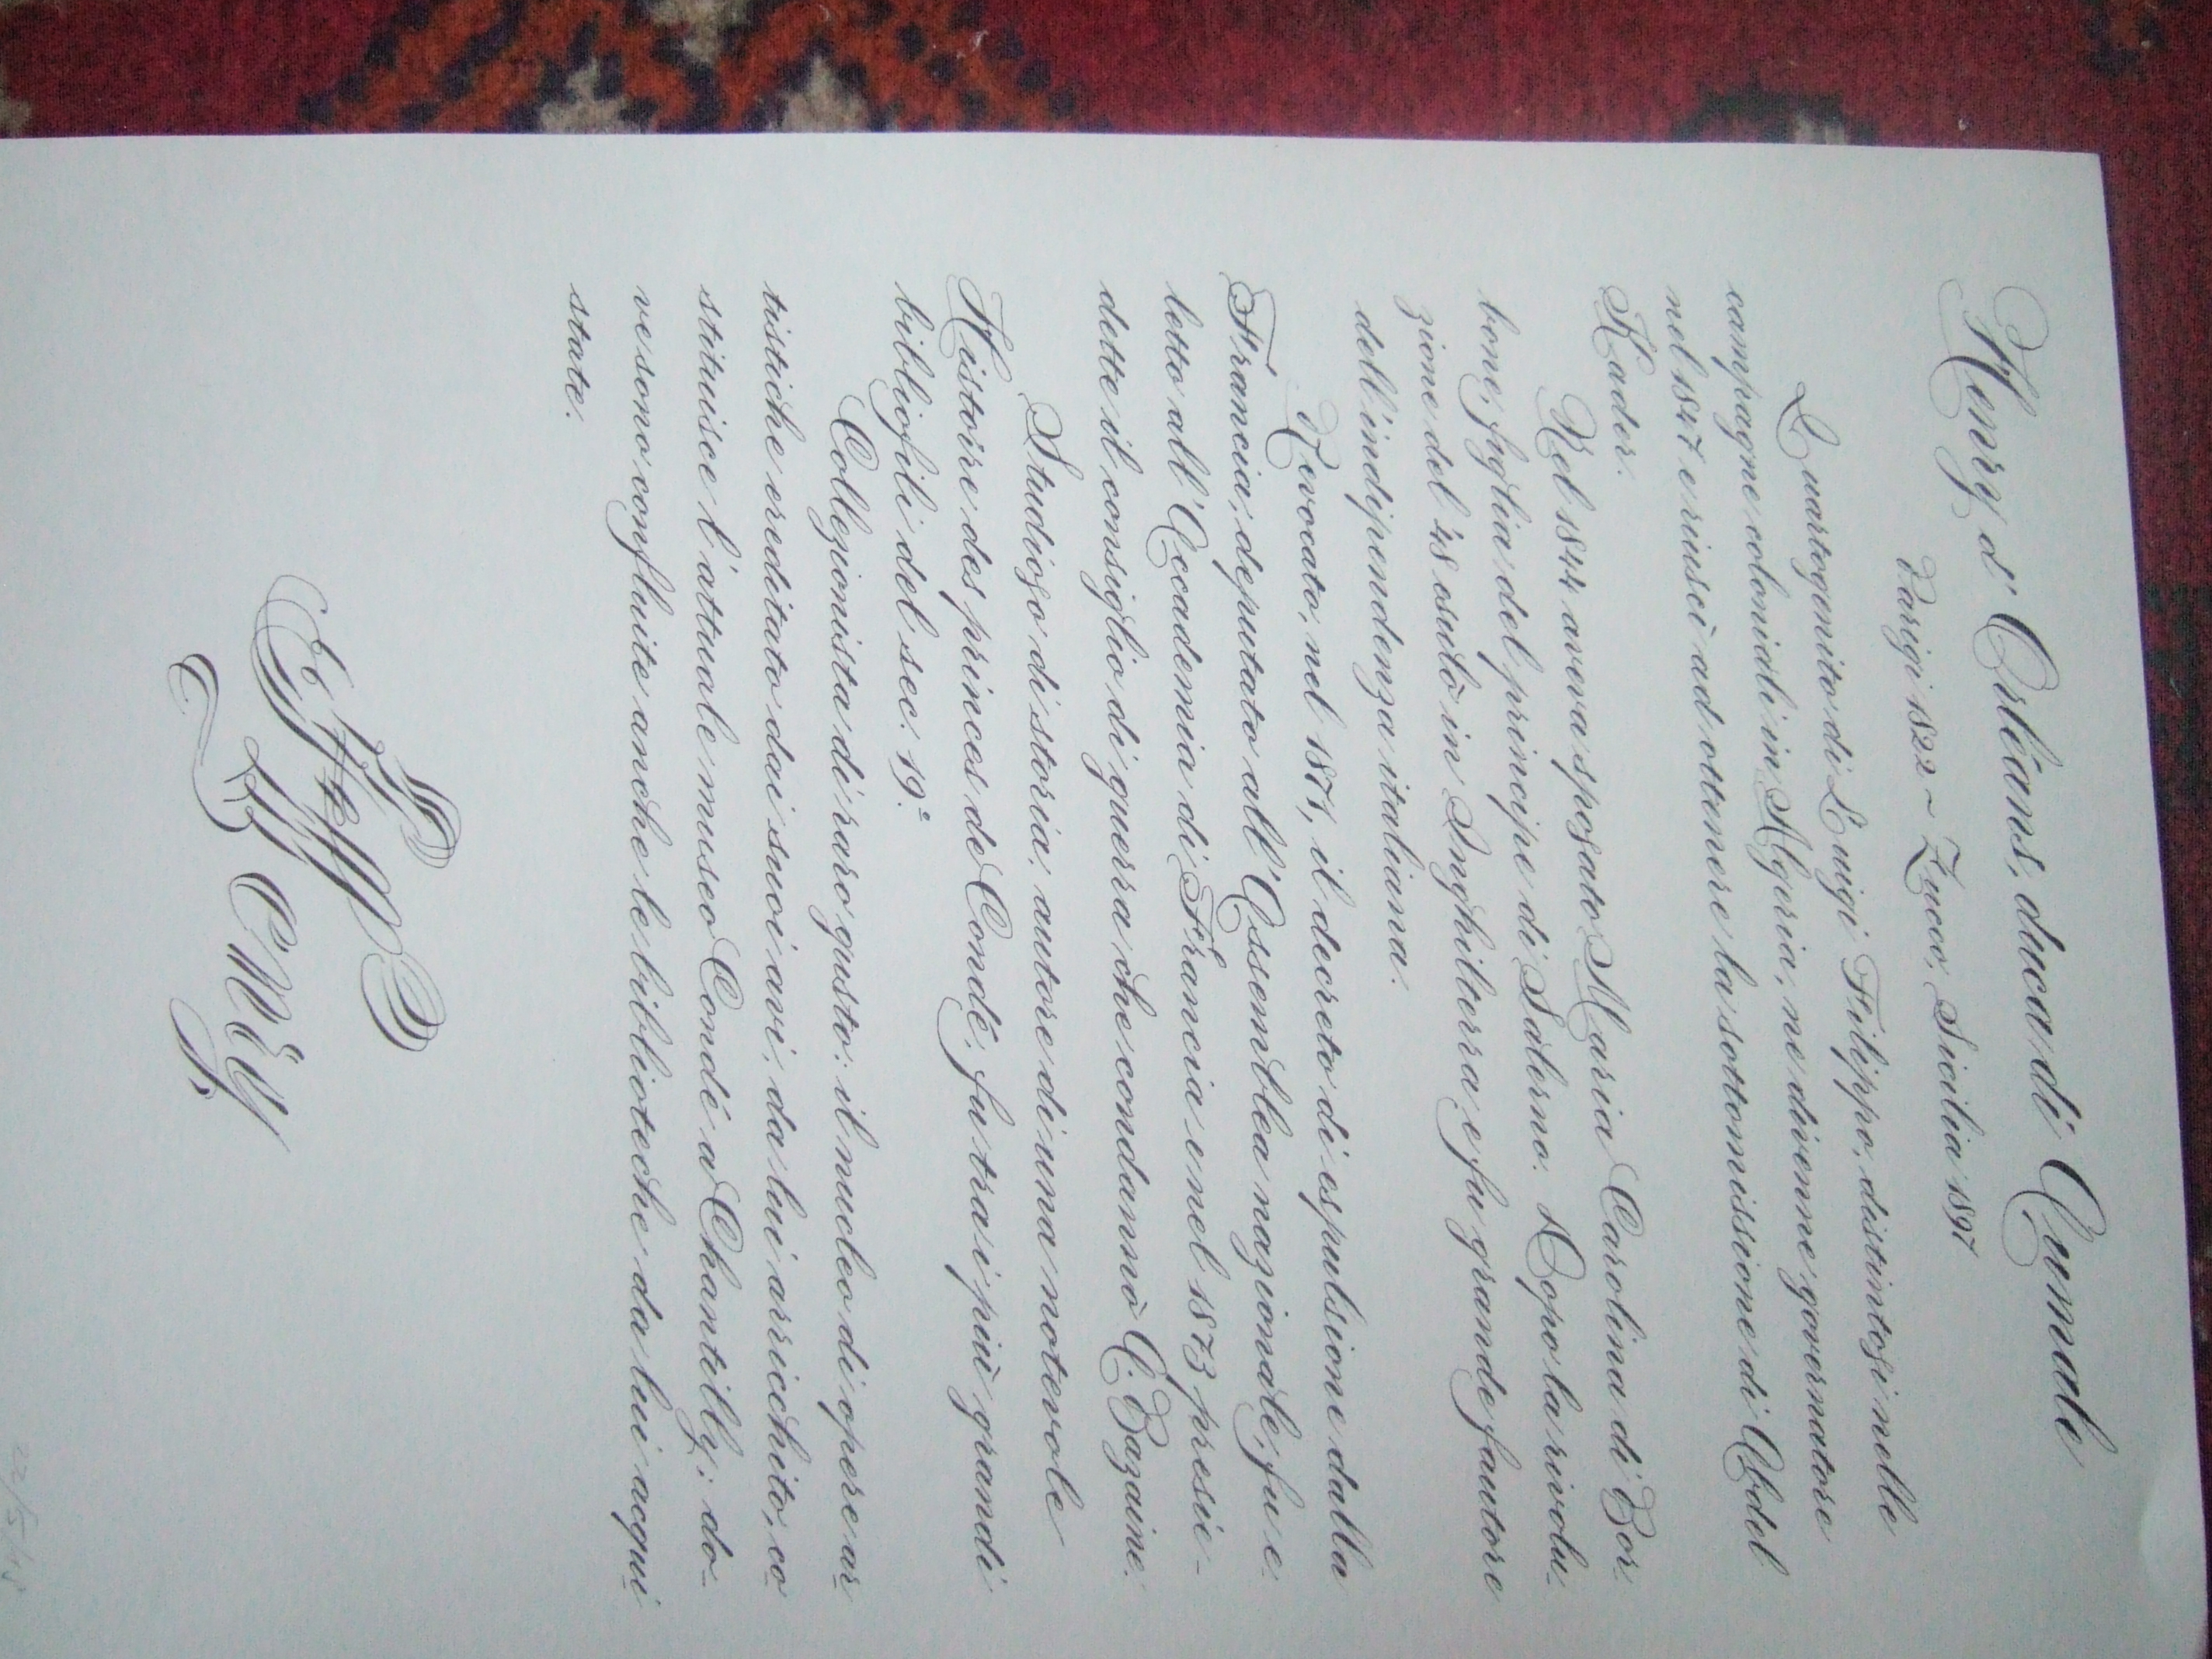 Henry d'Orléans, duca di Aumale
Parigi 1822 ~ Zucco, Sicilia 1897
Quartogenito di Luigi Filippo, distintosi nelle
campagne coloniali in Algeria, ne divenne governatore
nel 1847 e riuscì ad ottenere la sottomissione di Abdel
Kader.
Nel 1844 aveva sposato Maria Carolina di Bor-
bone, figlia del principe di Salerno. Dopo la rivolu-
zione del '48 esulò in Inghilterra e fu grande fautore
dell'indipendenza italiana.
Revocato, nel 1871, il decreto di espulsione dalla
Francia, deputato all'Assemblea nazionale, fu e-
letto all'Accademia di Francia e nel 1873 presie-
dette il consiglio di guerra che condannò A. Bazaine.
Studioso di storia, autore di una notevole
Histoire des princes de Condé, fu tra i più grandi
bibliofili del sec. 19°.
Collezionista di raro gusto: il nucleo di opere ar-
tistiche ereditato dai suoi avi, da lui arricchito, co-
stituisce l'attuale museo Condé a Chantilly; do-
ve sono confluite anche le biblioteche da lui acqui-
state.